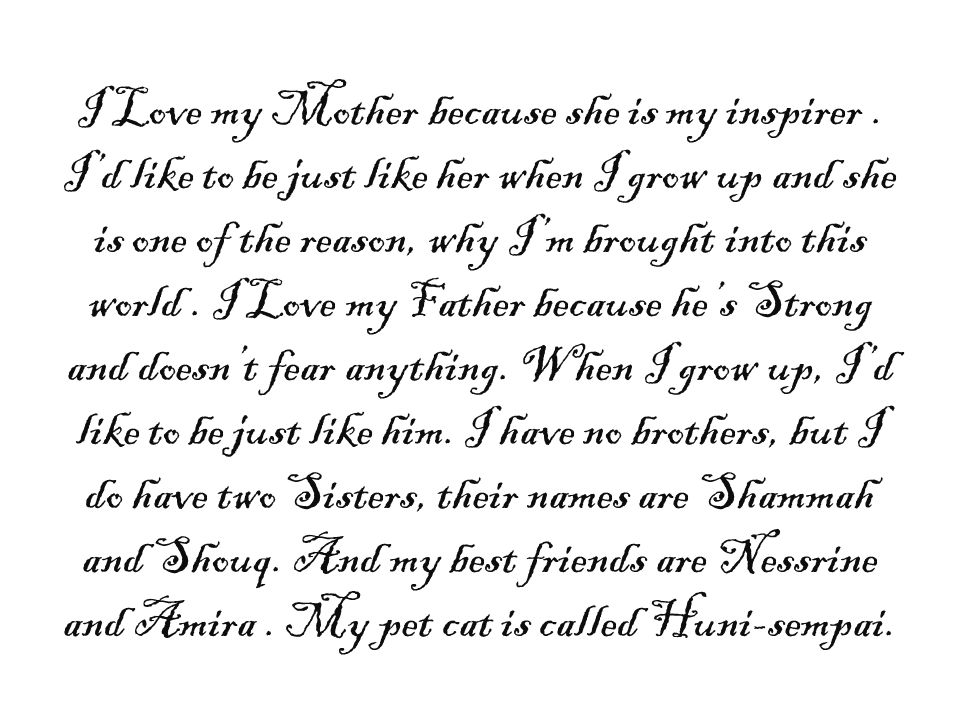 I Love my Mother because she is my inspirer .
I'd like to be just like her when I grow up and she
is one of the reason, why I'm brought into this
world . I Love my Father because he's Strong
and doesn't fear anything. When I grow up, I'd
like to be just like him. I have no brothers, but I
do have two Sisters, their names are Shammah
and Shouq. And my best friends are Nessrine
and Amira . My pet cat is called Huni-sempai.